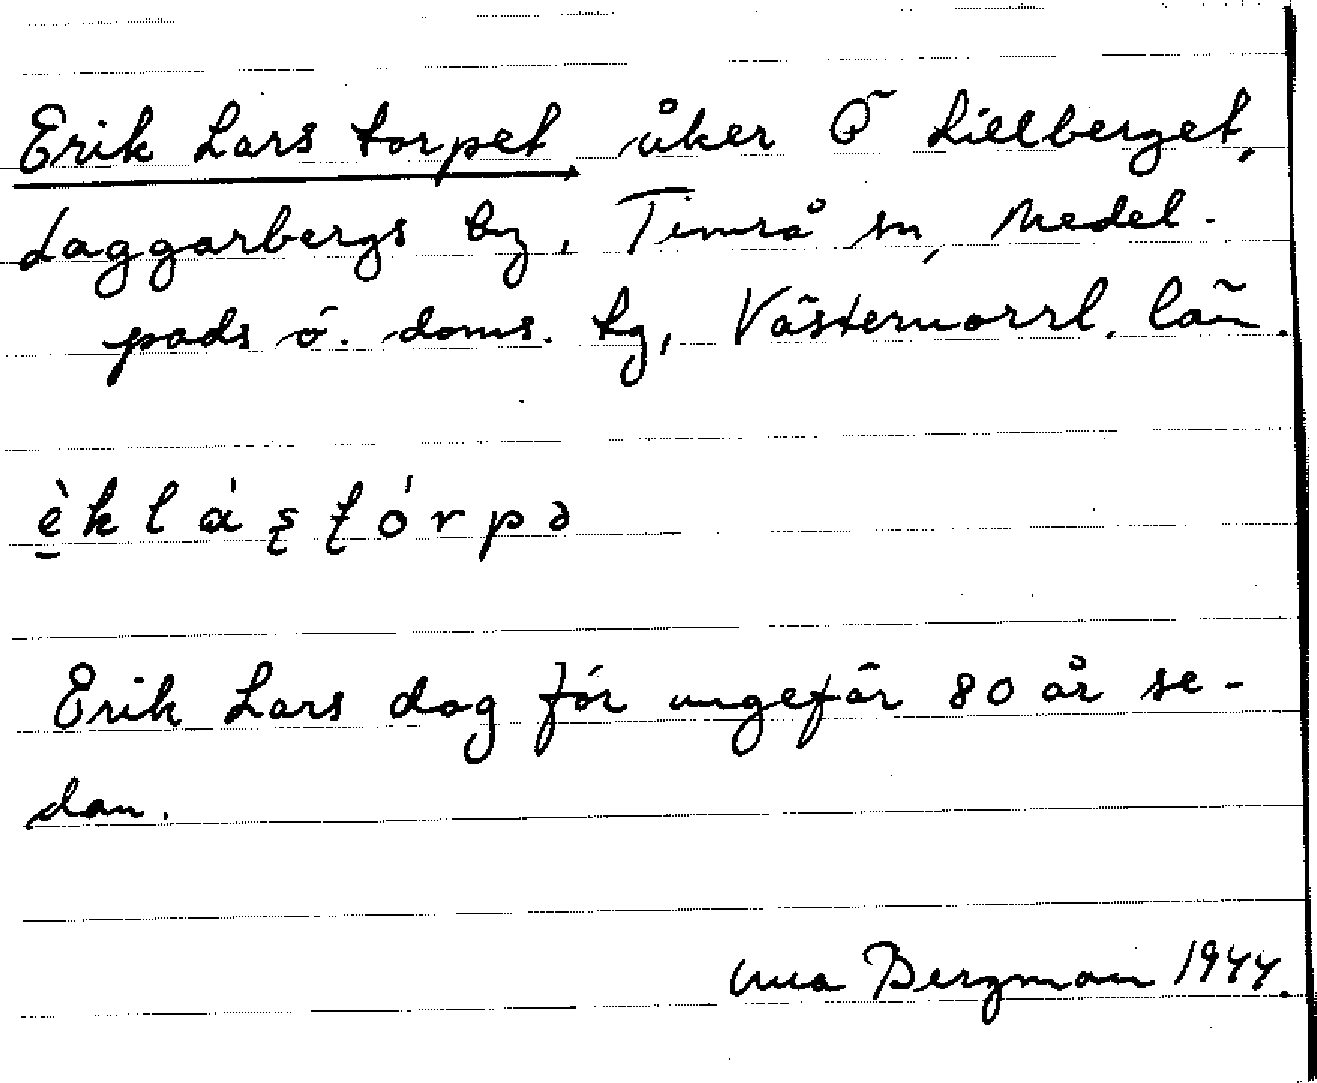 Erik Lars torpet, åker Ö Lillberget,
Laggarbergs by, Timrå sn, Medel-
pads ö. doms. tg, Västernorrl. län.
èkláʂʈórpə
Erik Lars dog för ungefär 80 år se-
dan.
Bergman 1944.